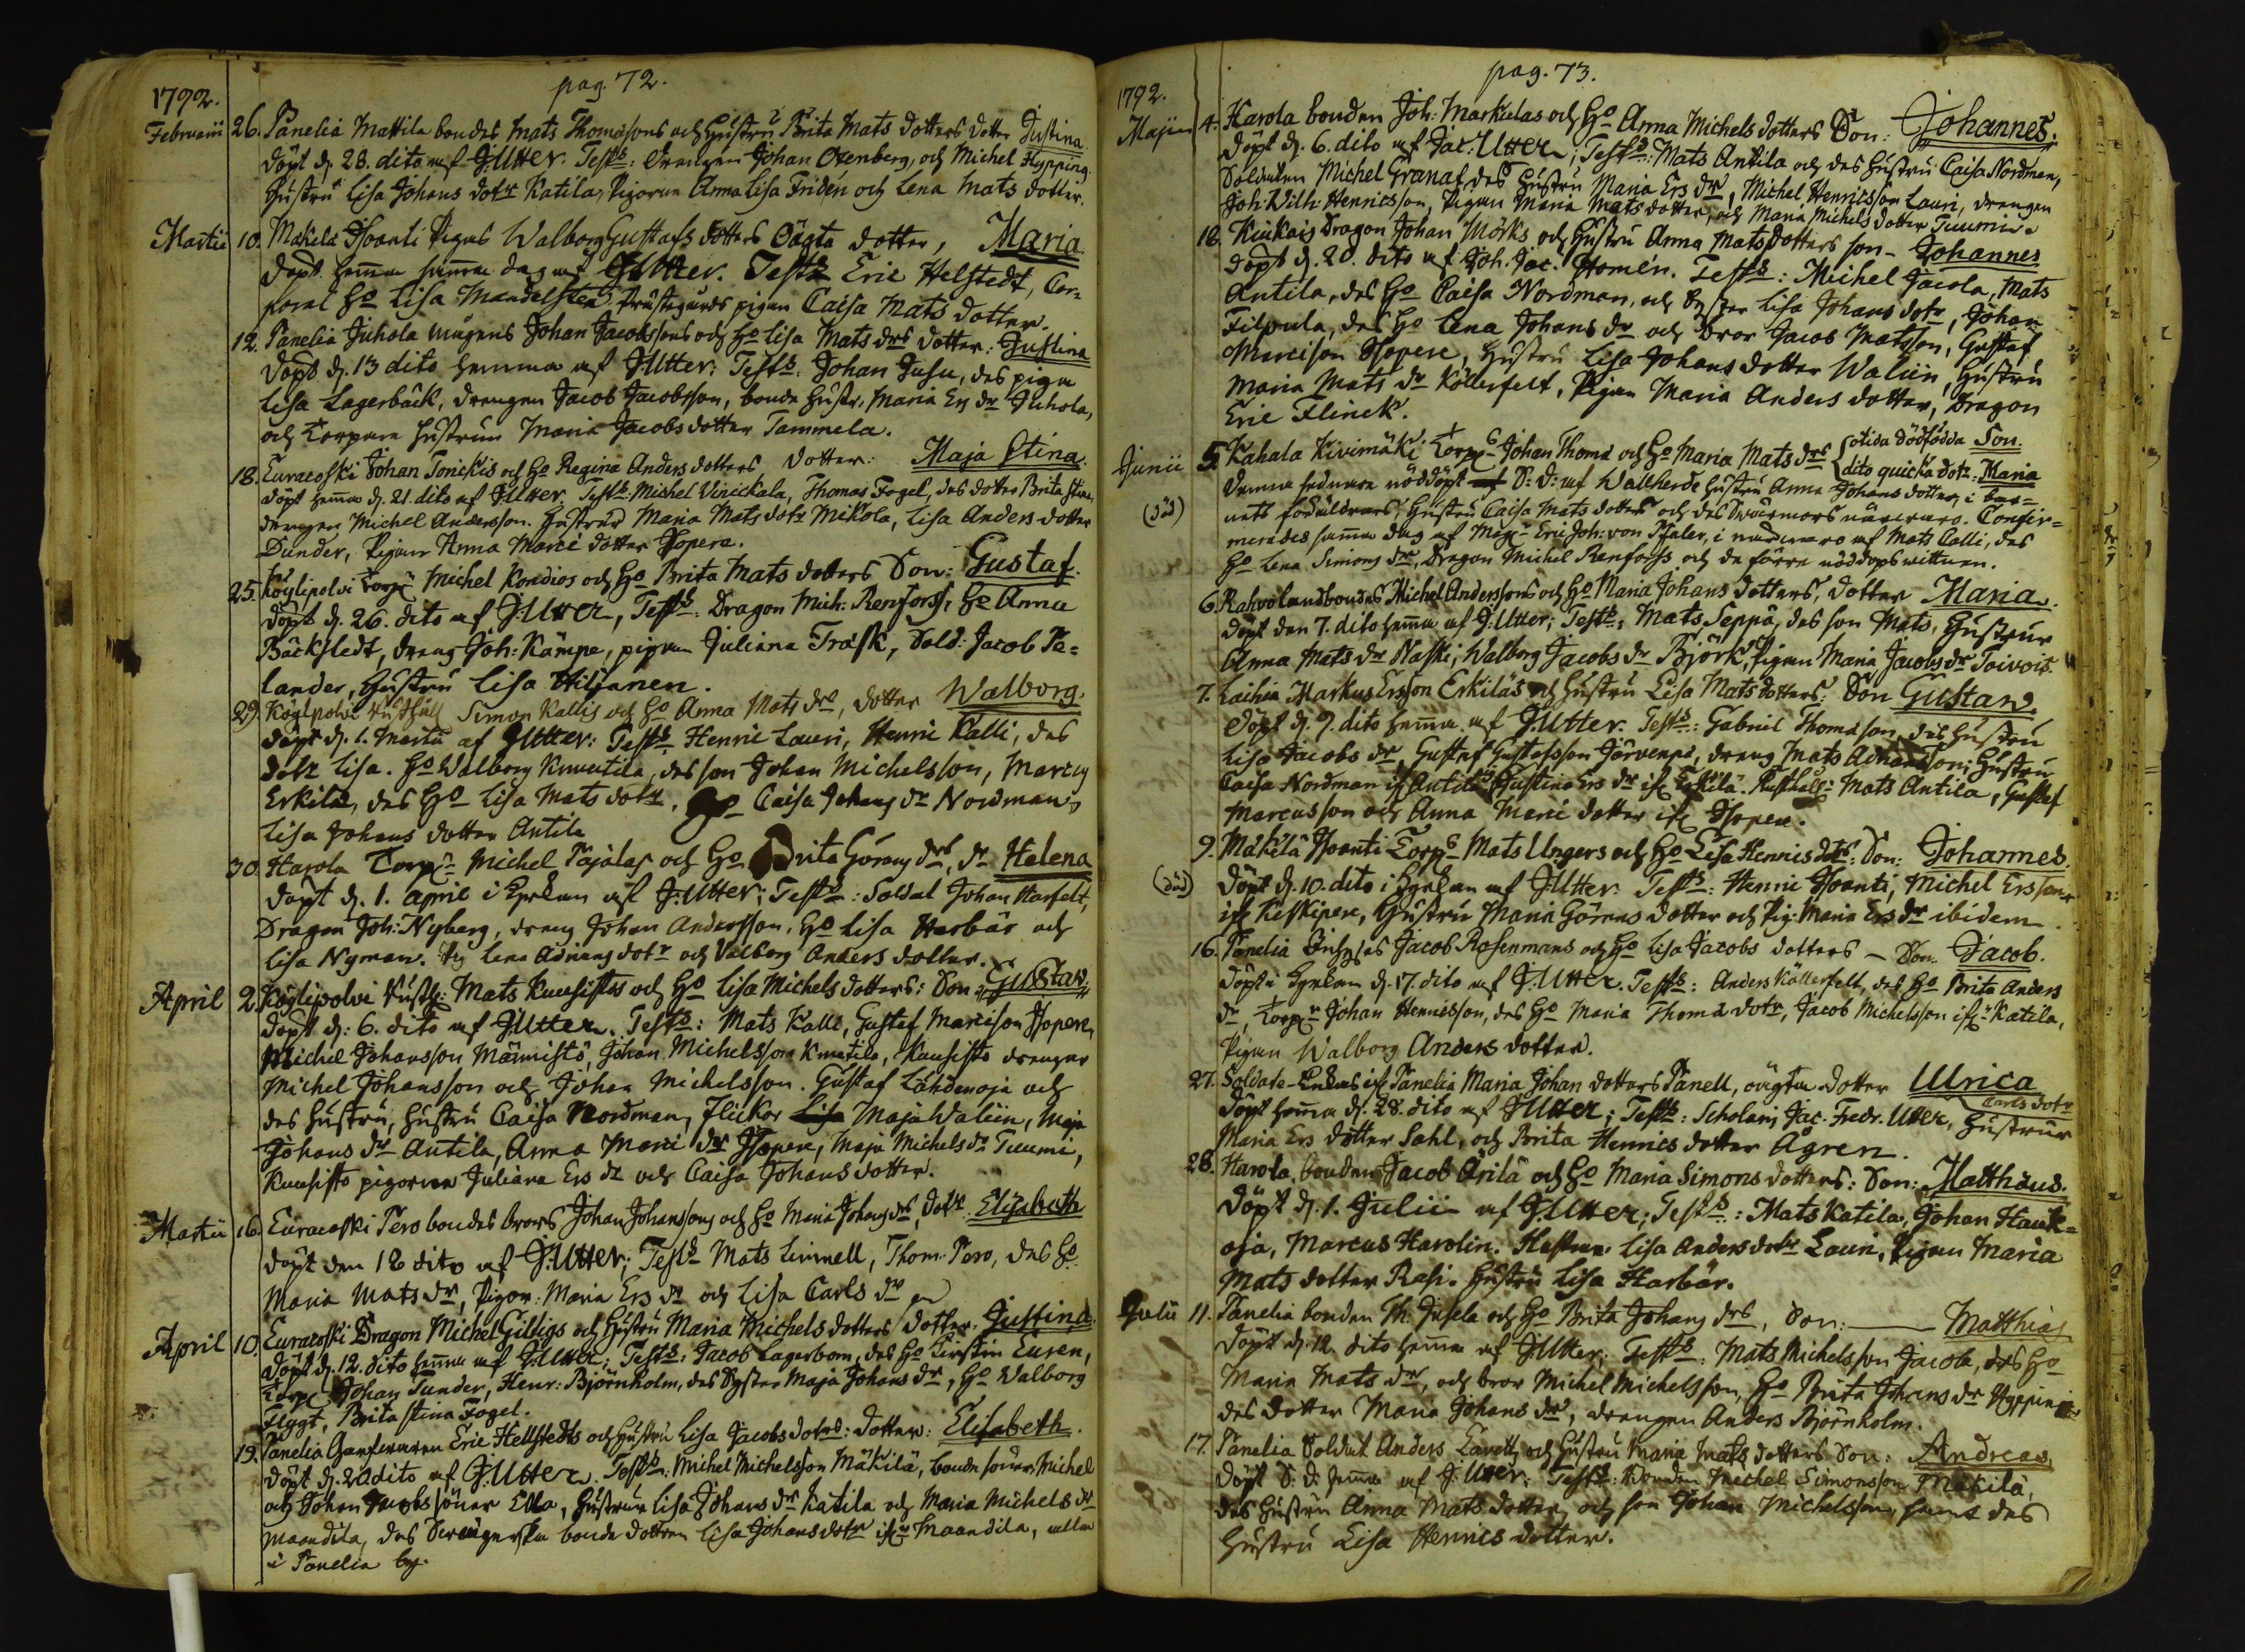 pag. 72.
1792.
Februarii 26. Panelia Mattila bondes Mats Thomæsons och Hustru Brita Mats dotters dotter Justina
döpt d. 28. dito af J: Utter. Test: drengen Johan Oxenberg, och Michel Hypping.
Hustru Lisa Johans dotr Katila, Pigorna Anna Lisa Fridén och Lena Mats dotter.
Martii 10. Makela Isoanti Pigas Walborg Gustafs dotters Oägta dotter, Maria
döpt hemma samma dag af J Utter. Test Eric Helstedt, Cor=
poral Ho Lisa Mandelsten Prustegårds pigan Caisa Mats dotter.
12. Panelia Juhola mågens Johan Jacobssons och Ho Lisa Mats drs dotter: Justina
döpt d. 13 dito hemma af J Utter; Test. Johan Jusu, des piga
Lisa Lagerbäck, drengen Jacob Jacobsson, bonde Hustr. Maria Ers dr Juhola,
och Torpare Hustrun Maria Jacobs dotter Tammela.
18. Euracoski Johan Tonickis och Ho Regina Anders dotters dotter: Maja Stina.
döpt hemma d. 21. dito af J Utter, Test: Michel Vinickala, Thomas Fogel, des dotter Brita Stina,
drengen Michel Andersson. Hustrur Maria Mats dotr Mikola, Lisa Anders dotter
Dunder, Pigan Anna Marci dotter Isopere.
25. Köylipolvi Torp Michel Kondios och Ho Brita Mats dotters Son: Gustaf.
döpt d. 26. dito af J: Utter, Test: Dragon Mich: Renforss, Ho Anna
Bäckstedt, dreng Joh: Kämpe, pigan Juliana Träsk, Sold: Jacob Pa=
lander, Hustru Lisa Hiljanen.
29. Köylpolvi Rusthåll Simon Kallis och Ho Anna Mats drs, dotter Walborg.
döpt d. 1. Martii af J Utter: Test. Henric Lauri, Henric Kalli, des
dotr Lisa. Ho Walborg Knuutila, des son Johan Michelsson, Marcus
Erkilä, des Ho Lisa Mats dotr. Ho Caisa Johans dr Nordman,
Lisa Johans dotter Antila
30. Harola Torp Michel Päjälas och Ho Brita Görans drs, dr Helena
döpt d. 1. April i Kyrkan af J: Utter; Test: Soldat Johan Harfelt,
Dragon Joh: Nyberg, dreng Johan Andersson, Ho Lisa Harbär och
Lisa Nyman. Pig Lena Adrians dotr och Valborg Anders dotter.
April 2. Köylipolvi Rusth: Mats Kuusistos och Ho Lisa Michels dotters: Son Gustav.
döpt d: 6. dito af J Utter. Test: Mats Kalli, Gustaf Marcison Isopere,
Michel Johansson Männistö, Johan Michelsson Knutila, Kuusisto drengar
Michel Johansson och Johan Michelsson. Gustaf Lähdenoja och
des Hustru, Hustru Caisa Nordman, Flickor Maja Waliin, Maja
Johans dr Antila, Anna Marci dr Isopere, Maja Michels dr Tuumi,
Kuusisto pigorna Juliana Ers dr och Caisa Johans dotter.
Martii 16. Euracoski Pero bondes brors Johan Johanssons och Ho Maria Johans drs, dotr. Elizabeth
döpt den 18 dito af J: Utter; Test Mats Linnell, Thom: Pero, des Ho
Maria Mats dr, Pigor: Maria Ers dr och Lisa Carls dr
April 10. Euracoski Dragon Michel Gilligs och Hustru Maria Michels dotters dotter Justina.
döpt d. 12. dito hemma af J: Utter; Test: Jacob Lagerbom, des Ho Kirstin Euren,
Torp Johan Tunder, Henr: Björnholm, des Syster Maja Johans dr, Ho Walborg
Flygt, Brita Stina Fogel.
19. Panelia Eric Hellstedts och Hustru Lisa Jacobs dotrs: dotter: Elisabeth.
döpt d. 20 dito af J: Utter. Test: Michel Michelsson Mäkilä, bonde soner Michel
och Johan Jacobs söner Ella, Hustrur Lisa Johans dr Katila och Maria Michels dr
Maandila, des Swägerska bonde dottren Lisa Johans dotr if Maandila, alla
i Panelia by.
pag. 73.
1792.
Majii 4. Harola bonden Joh: Markulas och Ho Anna Michels dotters Son: Johannes.
döpt d. 6. dito af Jac: Utter; Test: Mats Antila och des Hustru Caisa Nordman,
Soldaten Michel Granat des Hustru Maria Ers dr, Michel Henricsson Lauri, drengen
Joh: Wilh: Henricsson, Pigan Maria Mats dotter, och Maria Michels dotter Tuumi.
18. Kiukais Dragon Johan Mörks och Hustru Anna Mats dotters son - Johannes
döpt d. 20. dito af Joh. Jac. Homén. Test: Michel Jacola, Mats
Antila, des Ho Caisa Nordman, och Syster Lisa Johans dotr, Johan
Filpula, des Ho Lena Johans dr och bror Jacob Matsson, Gustaf
Marcison Isopere, Hustru Lisa Johans dotter Waliin, Hustru
Maria Mats dr Köllerfelt, Pigan Maria Anders dotter, Dragon
Eric Flinck.
Junii 5. Kahala Kivimäki Torp Johan Thomæ och Ho Maria Mats drs { otida dödfödda Son.
dito quicka dotr: Maria
(död) denna sednare nöddöpt S: D: af Wallherde Hustru Anna Johans dotter, i bar=
nets föräldrars, Hustru Caisa Mats dotters och des Swärmors närwaro. Confir=
merades samma dag af Mag: Eric Joh: von Pfaler, i närwaro af Mats Calli, des
Ho Lena Simons dr, Dragon Michel Renforss och de förra nöddops wittnen.
6. Rahvo landbondes Michel Anderssons och Ho Maria Johans dotters, dotter Maria.
döpt den 7. dito hemma af J: Utter; Test: Mats Seppä, des son Mats, Hustrur
Anna Mats dr Naski, Walborg Jacobs dr Björk, Pigan Maria Jacobs dr Toivois.
7. Laihia Markus Ersson Erkiläs och Hustru Lisa Mats dotters: Son Gustav.
döpt d. 9. dito hemma af J: Utter. Test: Gabriel Thomæson, des Hustru
Lisa Jacobs dr, Gustaf Gustafsson Järvenpä, dreng Mats Adriansson; Hustru
Caisa Nordman if. Antila, Justina Ers dr if. Erkilä. Rusthåll: Mats Antila, Gustaf
Marcusson och Anna Marci dotter if. Isopere.
9. Mäkilä Isoanti Torp Mats Ungers och Ho Lisa Henrics dotrs: Son: Johannes.
(död) döpt d. 10. dito i Kyrkan af J: Utter. Test: Henric Isoanti, Michel Ersson
if. Keskipere, Hustru Maria Görans dotter och Pig: Maria Ers dr ibidem
16. Panelia Inhyses Jacob Rosenmans och Ho Lisa Jacobs dotters - Son Jacob.
döpt i Kyrkan d. 17. dito af J: Utter. Test: Anders Källerfelt, des Ho Brita Anders
dr, Torp Johan Henricsson, des Ho Maria Thomæ dotr, Jacob Michelsson if. Katila,
Pigan Walborg Anders dotter.
27. Soldate-Enkas if. Panelia Maria Johan dotters Panell, oägta dotter Ulrica
Carls dotr
döpt hemma d. 28. dito af J: Utter; Test: Scholaris Jac. Fredr. Utter, Hustrur
Maria Ers dotter Sahl, och Brita Henrics dotter Ågren.
28. Harola, bonden Jacob Ärilä och Ho Maria Simons dotters: Son: Matthæus.
döpt d. 1. Julii af J. Utter; Test: Mats Katila, Johan Hauk=
oja, Marcus Harolin. Hustrur: Lisa Anders dotr Lauri, Pigan Maria
Mats dotter Rasi. Hustru Lisa Harbär.
Julii 11. Panelia bonden Th. Jusela och Ho Brita Johans drs, Son: Matthias
döpt d. 12. dito hemma af J: Utter; Test: Mats Michelsson Jacola, des Ho
Maria Mats dr, och bror Michel Michelsson, Ho Brita Johans dr Hypping
des dotter Maria Johans dr, drengen Anders Björnholm.
17. Panelia Soldat Anders Lavetts och Hustru Maria Mats dotters Son: Andreas
döpt S: D: hemma af J: Utter; Test: Bonden Michel Simonsson Mäkilä,
des Hustru Anna Mats dotter, och son Johan Michelsson, samt des
Hustru Lisa Henrics dotter.